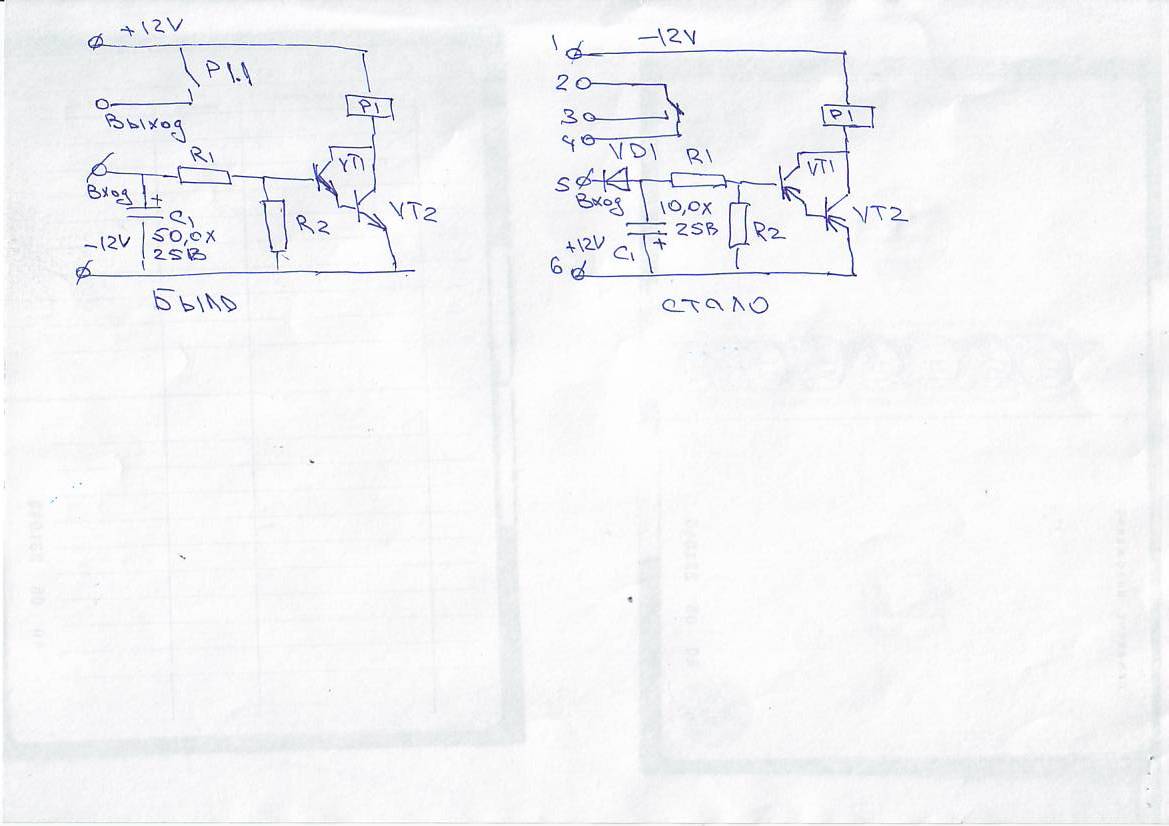 +12V
P1.1
P1
Выход
R1
VT1
Вход
+
C1
50,0x
25В
R2
VT2
-12V
Было
1
-12V
2
3
4
P1
VD1
R1
VT1
5
Вход
10,0x
25В
R2
VT2
+12V
C1
+
6
стало